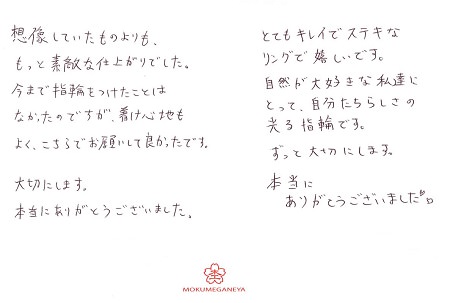 想像していたものよりも、
もっと素敵な仕上がりでした。
今まで指輪をつけたことは
なかったのですが、着け心地も
よく、こちらでお願いして良かったです。
大切にします。
本当にありがとうございました。
とてもキレイでステキな
リングで嬉しいです。
自然が大好きな私達に
とって、自分たちらしさの
光る指輪です。
ずっと大切にします。
本当に
ありがとうございました
MOKUMEGANEYA